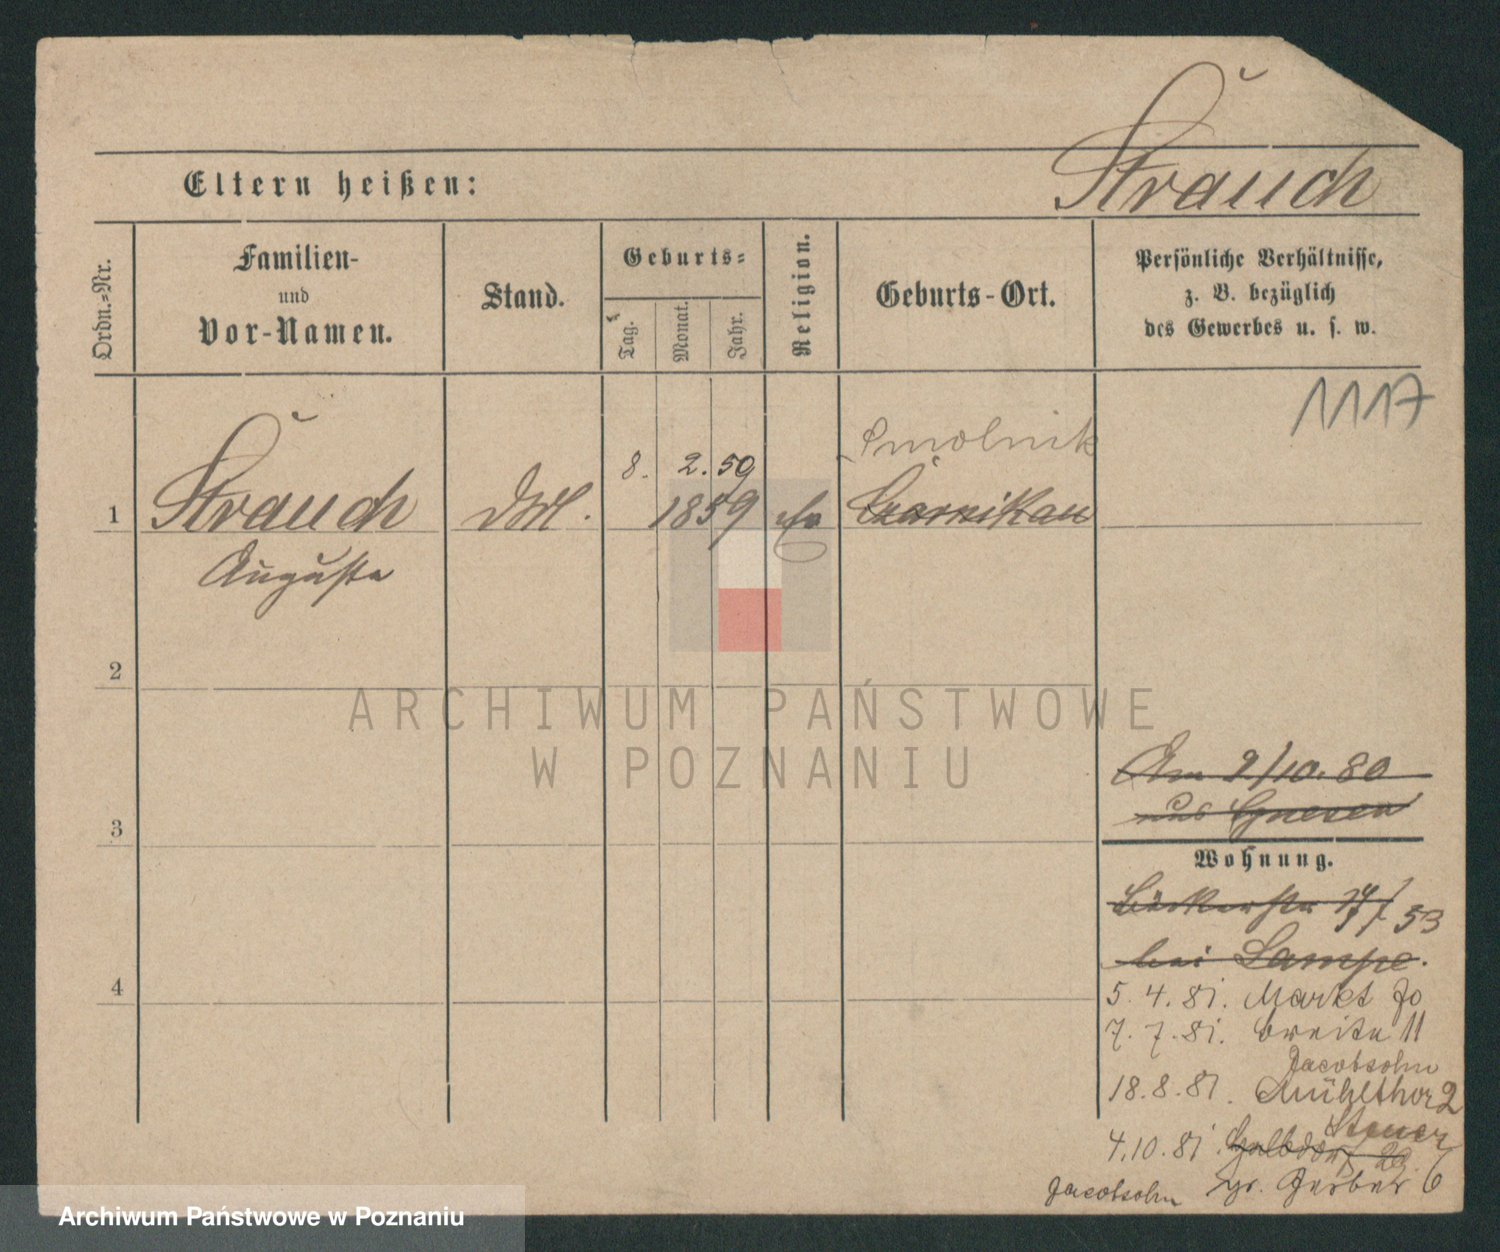 Strauch
Eltern heißen:
Ordn.=Nr.
Familien-
und
Vor-Namen.
Stand.
Geburts=
Tag.
Monat.
Jahr.
Religion.
Geburts-Ort.
Persönliche Verhältnisse,
z. B. bezüglich
des Gewerbes u. s. w.
1117
Smolnik
8. 2. 50
1 Strauch 1859 Czarnikau
Auguste
2
3
4
ARCHIWUM PAŃSTWOWE
W POZNANIU
Am 2/10. 80
aus Gnesen
Wohnung.
Bäckerstr 17/ 53
bei Lampe.
5. 4. 81. Markt
7. 7. 81. Breite 11
Jacobsohn
18. 8. 81. Mühlthor 2
4. 10. 81.
Jacobsohn gr. Gerber 6
Archiwum Państwowe w Poznaniu